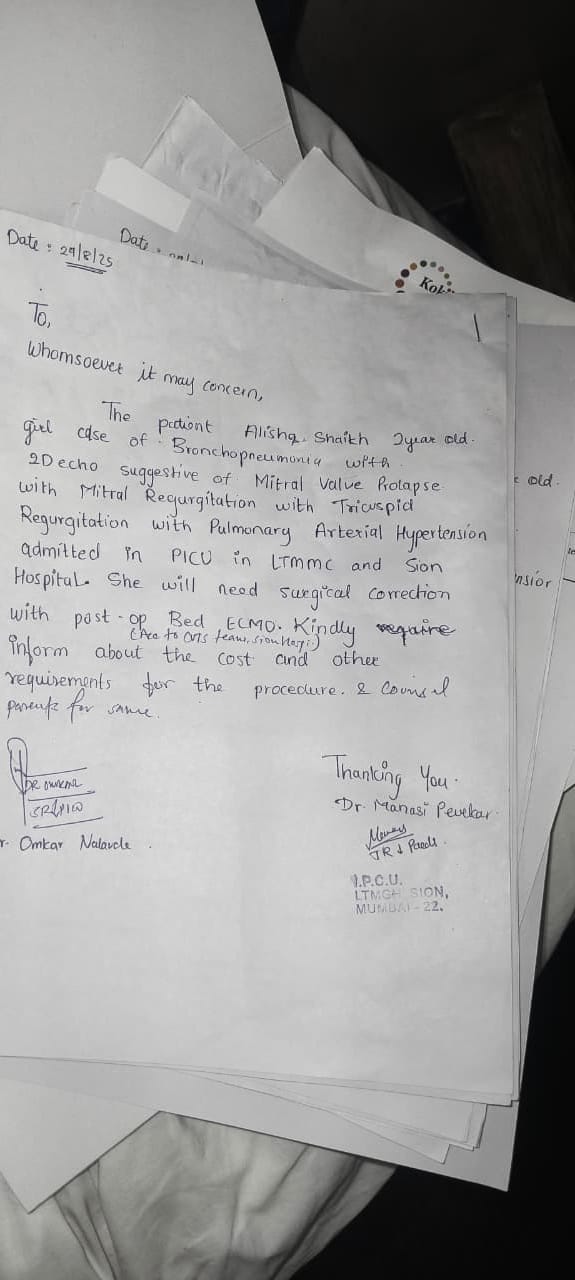 Date : 29/8/25
Date
Kok
To,
Whomsoever it may concern,
The pationt Alisha Shaikh 2year old.
girl case of Bronchopneumonia with
2D echo suggestive of Mitral Valve Prolapse
with Mitral Regurgitation with Tricuspid
Regurgitation with Pulmonary Arterial Hypertension
admitted in PICU in LTMMC and Sion
Hospital. She will need surgical correction
with post-op Bed ECMO. Kindly
to CVTS team, Sion Hosp.)
inform about the cost and other
requirements for the procedure. & Counsel
parents for same.
old.
nsior
Thanking You.
Dr. Manasi Pevekar
JR 1 Paeds.
I.P.C.U.
LTMGH SION,
MUMBAI - 22.
DR OMKAR
SR PICU
Omkar Nalavde